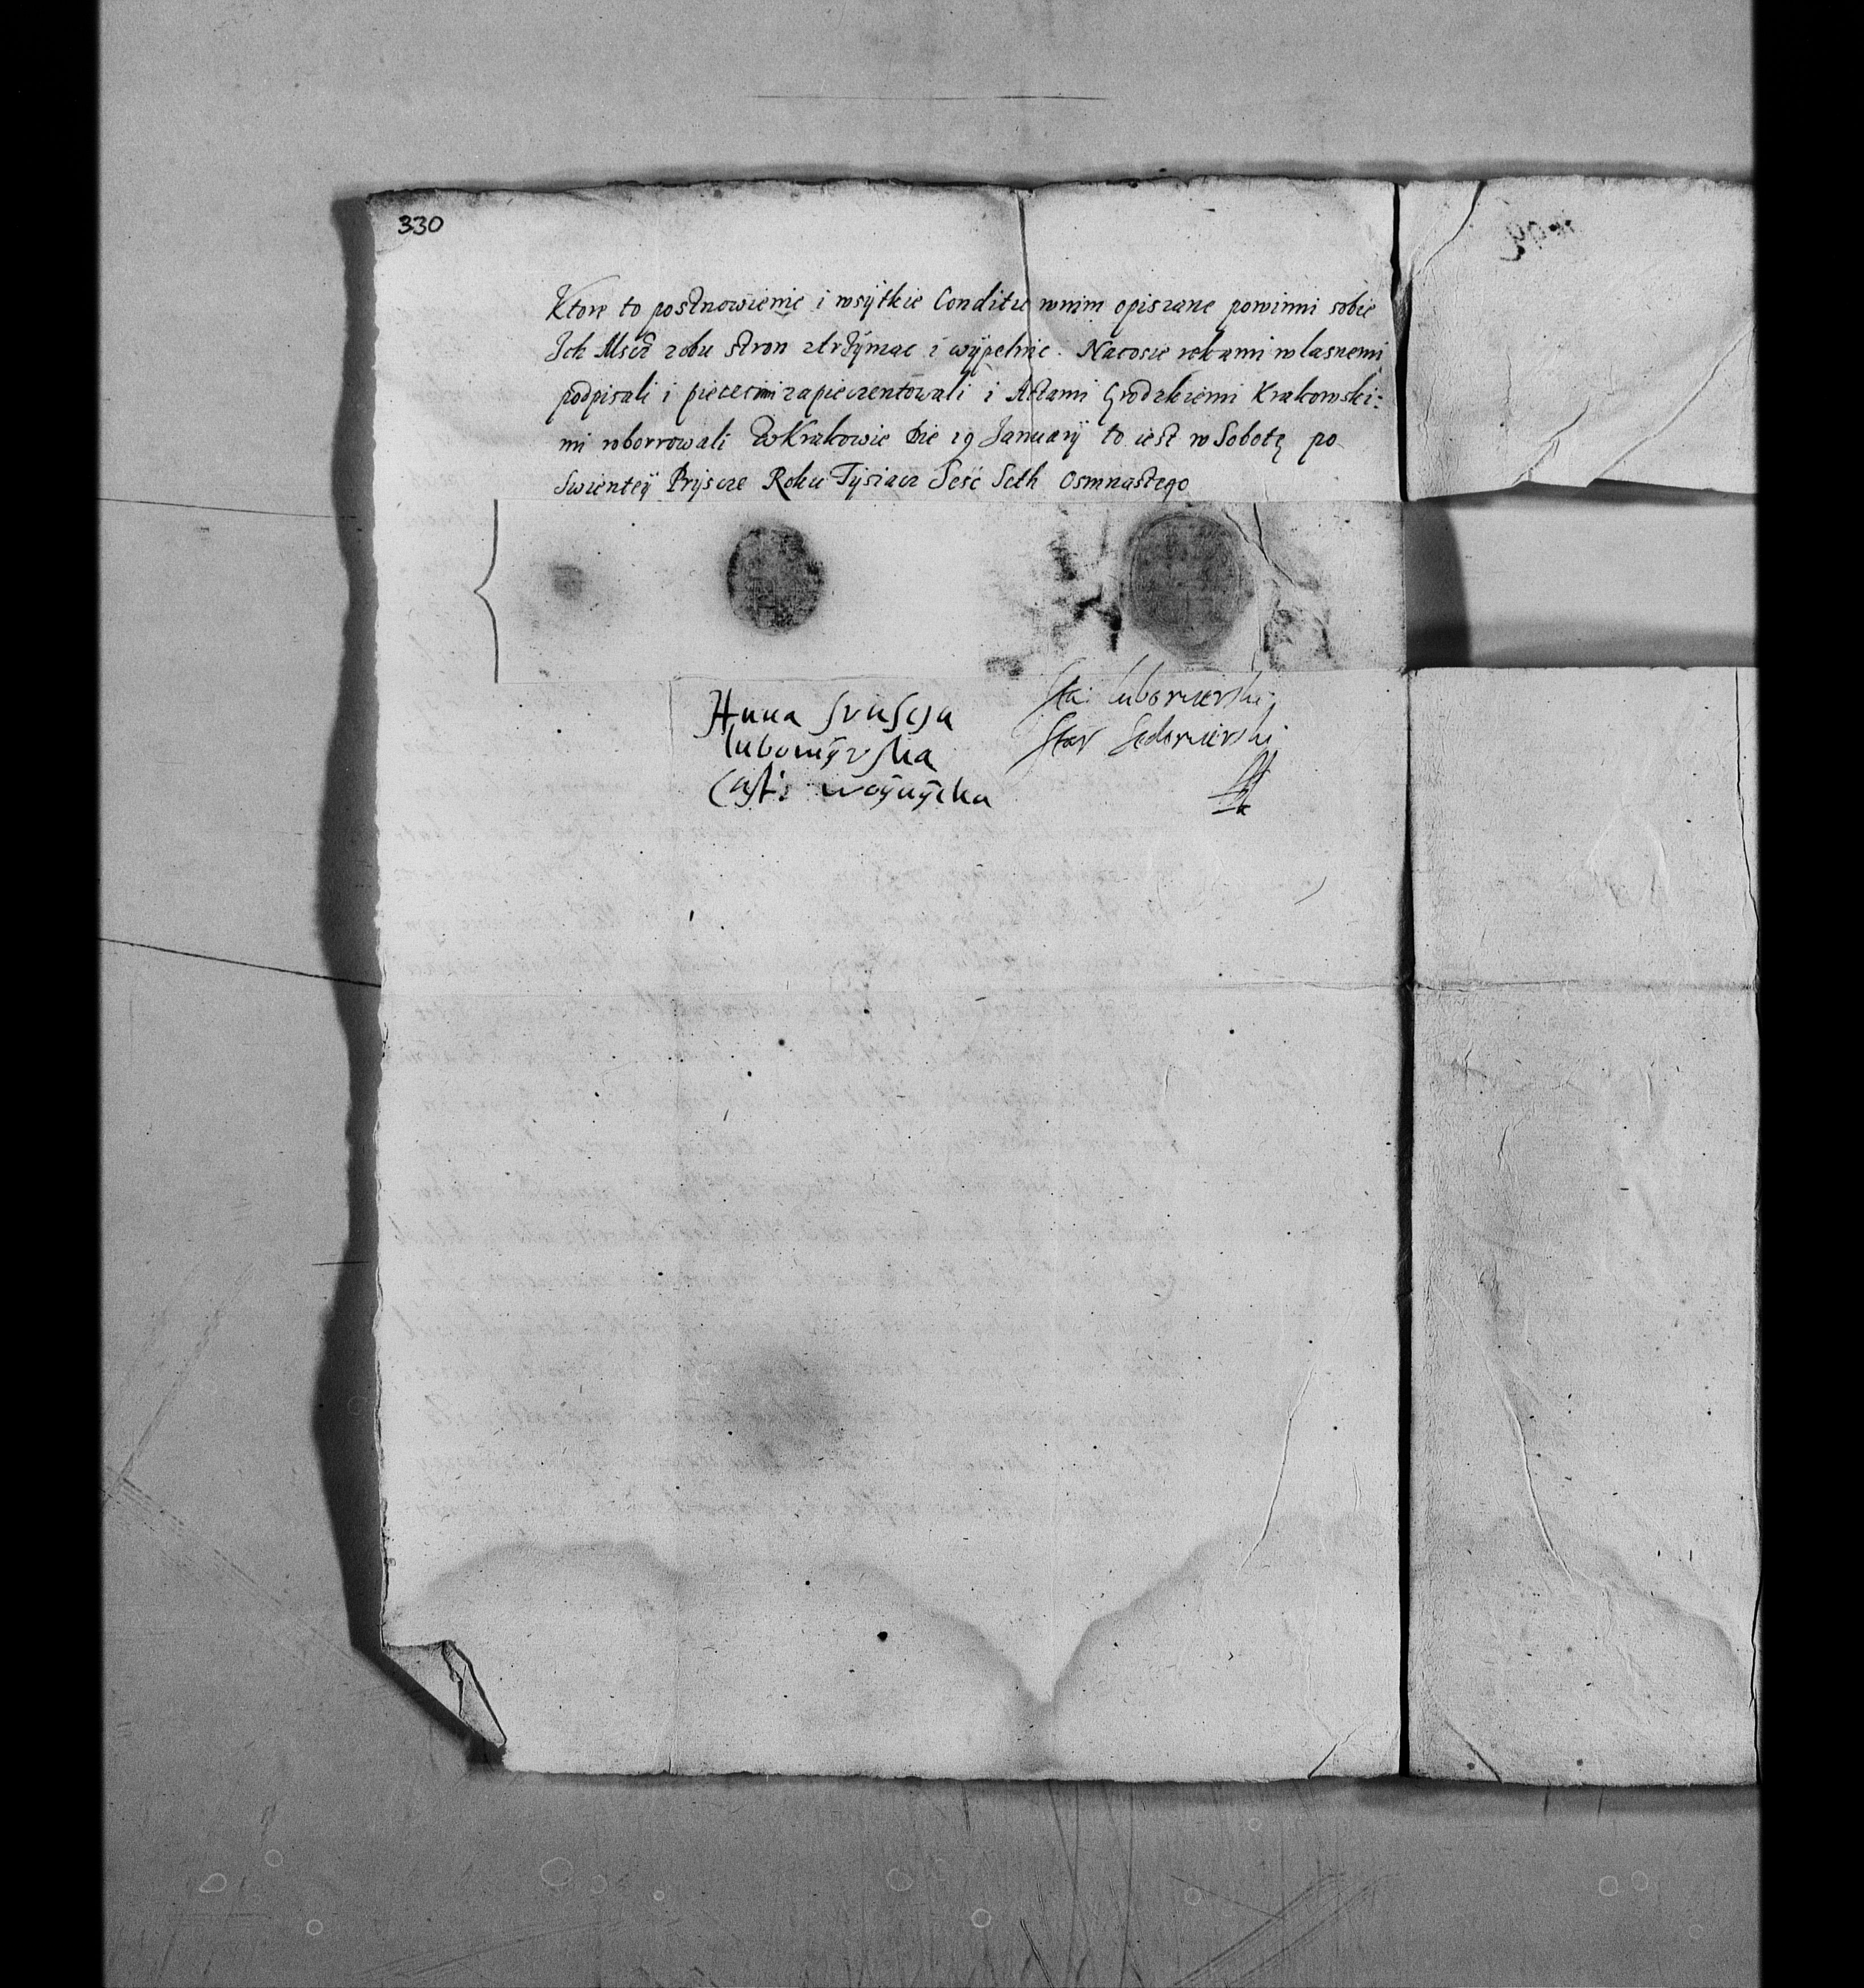 330
Ktore to postnowienie i wsÿtkie Conditie wnim opiszane powinni sobie
Ich Mscż zobu stron zdrżÿmac i wÿpełnic. Nacosie rekami wlasnemi
podpisali i piececmi zapieczentowali i Actami Grodzkiemi Krakowski:
mi roborrowali W Krakowie Die 19 Januarÿ to iest w Sobotę po
Swientÿ Prÿscze Roku Tÿsiacz Seść Seth Osmnastego
Anna
lubomÿrska
Cast: woÿnÿcka
Sta: lubomierski
Star Sedomierski